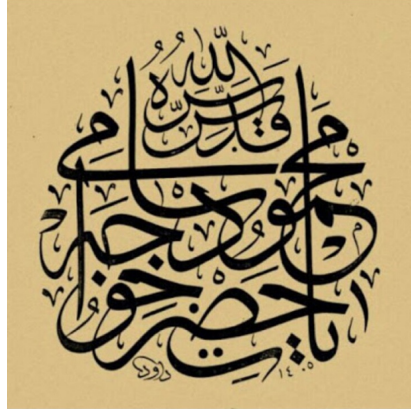 يا حضرت خواجه
محمود سامي
قدس الله سره
داود ١٤٠٥